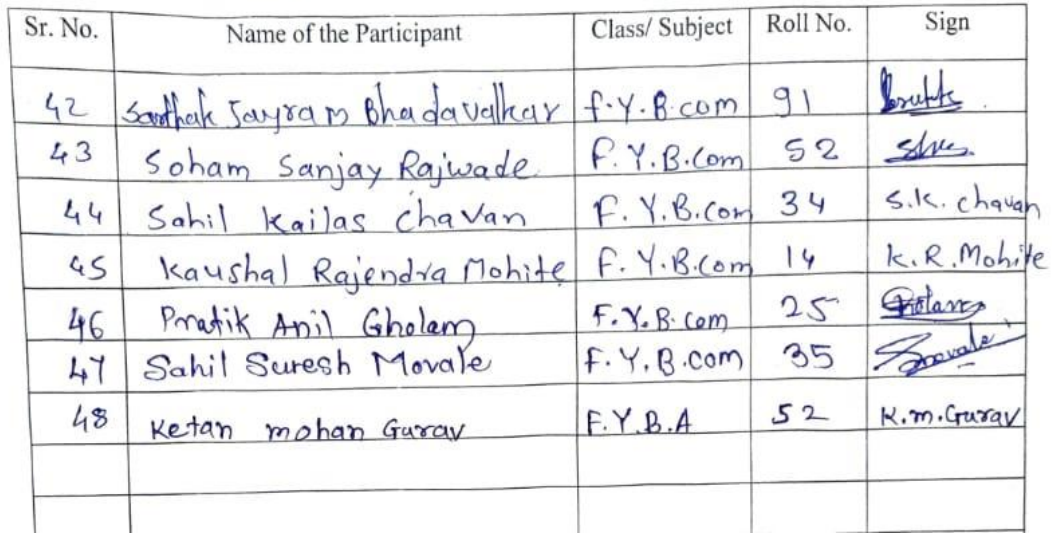 Sr. No. Name of the Participant Class/ Subject Roll No. Sign
42 Sarthak Jayram Bhadavalkar F.Y.B.com 91
43 Soham Sanjay Rajwade F.Y.B.Com 52
44 Sahil Kailas Chavan F.Y.B.Com 34 S.K. Chavan
45 Kaushal Rajendra Mohite F.Y.B.Com 14 K.R.Mohite
46 Pratik Anil Gholam F.Y.B.com 25
47 Sahil Suresh Movale F.Y.B.com 35
48 Ketan mohan Gurav F.Y.B.A 52 K.m.Gurav